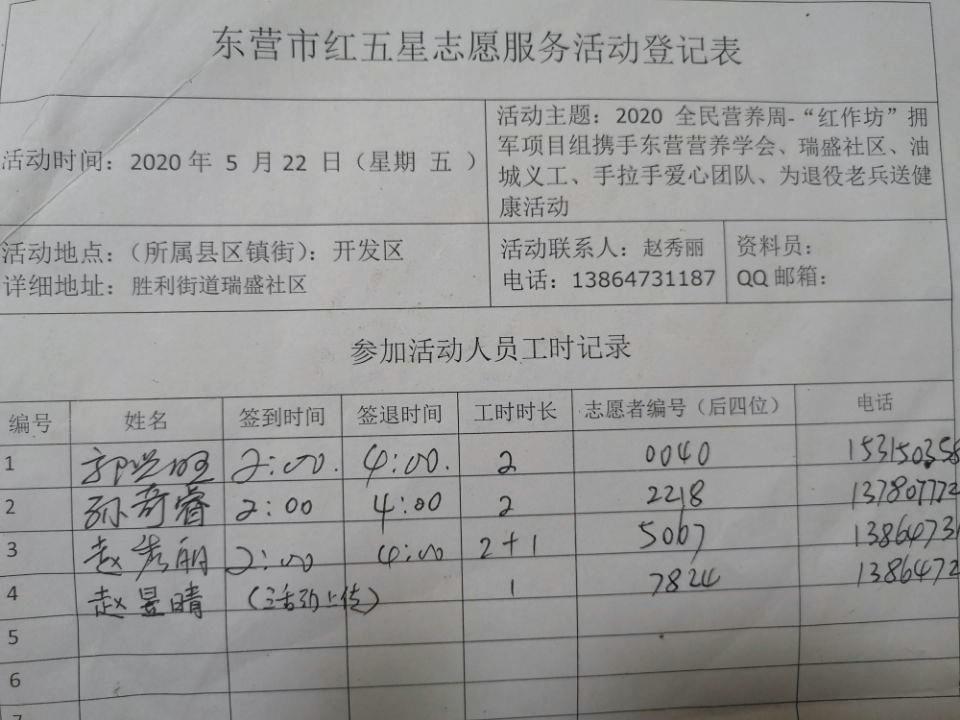 东营市红五星志愿服务活动登记表
活动时间：2020 年 5 月 22 日（星期 五 ）
活动主题：2020 全民营养周-“红作坊”拥
军项目组携手东营营养学会、瑞盛社区、油
城义工、手拉手爱心团队、为退役老兵送健
康活动
活动地点：（所属县区镇街）：开发区
详细地址：胜利街道瑞盛社区
活动联系人：赵秀丽
电话：13864731187
资料员：
QQ 邮箱：
参加活动人员工时记录
编号 姓名 签到时间 签退时间 工时时长 志愿者编号（后四位） 电话
1 郭兴旺 2:00. 4:00. 2 0040 153150358
2 孙奇睿 2:00 4:00 2 2218 137807772
3 赵秀丽 2:00 4:00 2+1 5067 1386473
4 赵昱晴 （活动上传） 1 7824 1386472
5
6
7